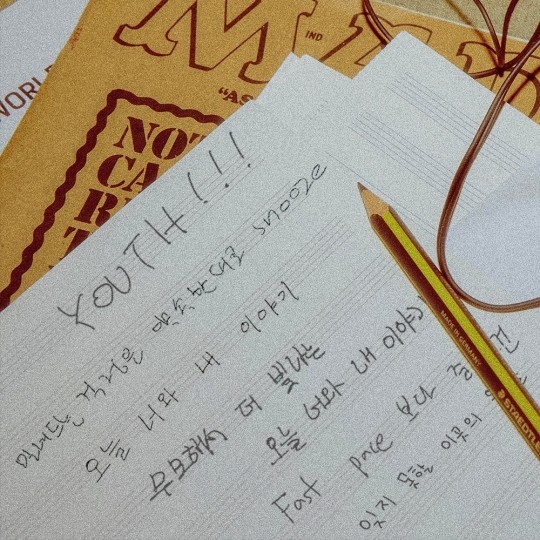 WORL
IND
"AS
NOT
CA
YOUTH!!!
밀려드는 걱정은 약속한대로 snooze
오늘 너와 내 이야기
무모해서 더 빛나는
오늘 너와 내 이야기
Fast pace 보다
잊지 못할 이곳의
MADE IN GERMANY
STAEDTL